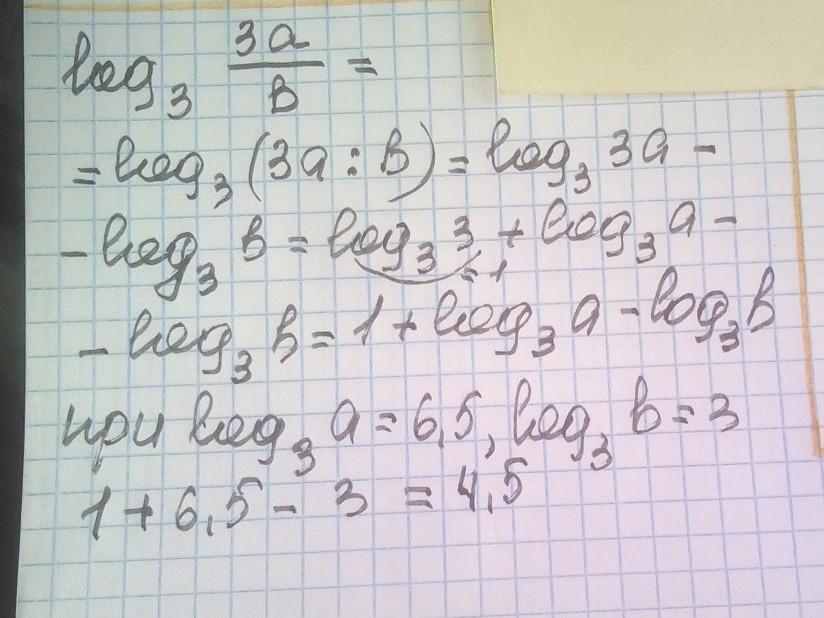 log₃ 3a/b =
= log₃ (3a : b) = log₃ 3a -
- log₃ b = log₃ 3 + log₃ a -
= 1
- log₃ b = 1 + log₃ a - log₃ b
при log₃ a = 6,5, log₃ b = 3
1 + 6,5 - 3 = 4,5